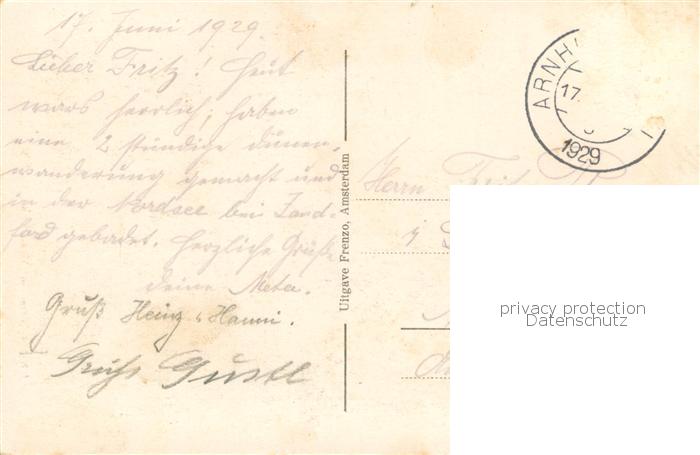 17. Juni 1929.
Lieber Fritz! Heut
wars herrlich; haben
eine 2 stündige Dünen-
wanderung gemacht und
in der Nordsee bei Zand-
ford gebadet. Herzliche Grüße
deine Meta.
Gruß Heinz & Hanni.
Gustl
Uitgave Frenzo, Amsterdam
ARNH
17.
1929
Herrn
privacy protection
Datenschutz